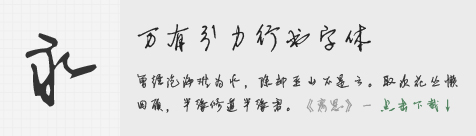 永
万有引力行书字体
曾经沧海难为水，除却巫山不是云。取次花丛懒
回顾，半缘修道半缘君。《离思》 - 点击下载↓